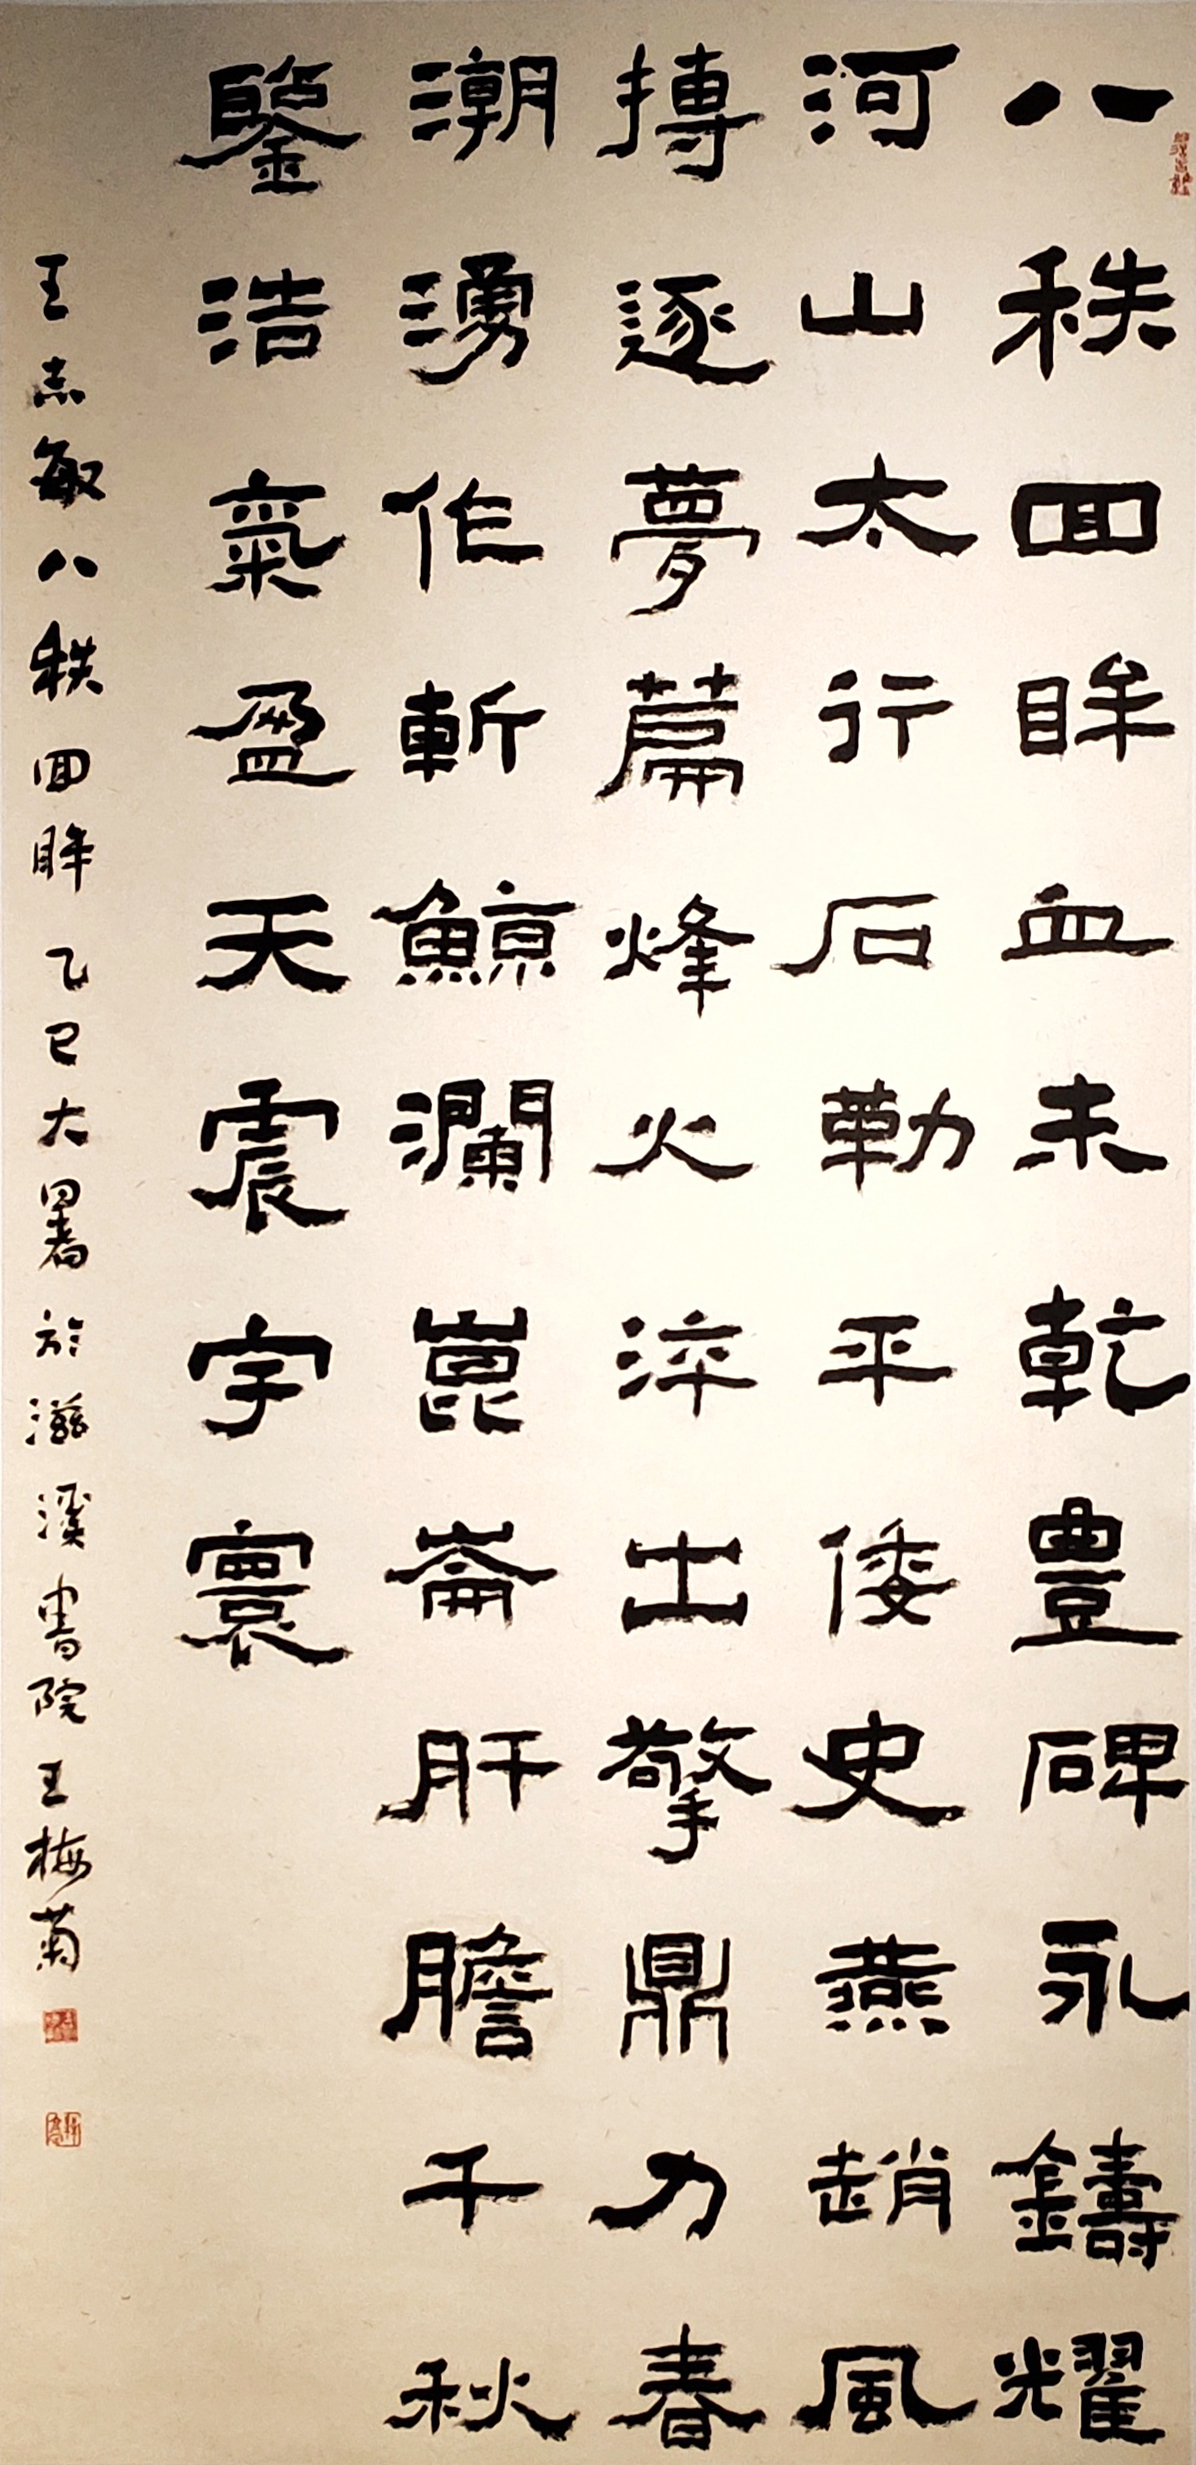 八秩回眸血未乾豊碑永鑄耀
河山太行石勒平倭史燕趙風
摶逐夢篇烽火淬出擎鼎力春
潮湧作斬鯨瀾崑崙肝膽千秋
鑒浩氣盈天震宇寰
王志敏八秩回眸乙巳大暑於滋溪書院王梅菊